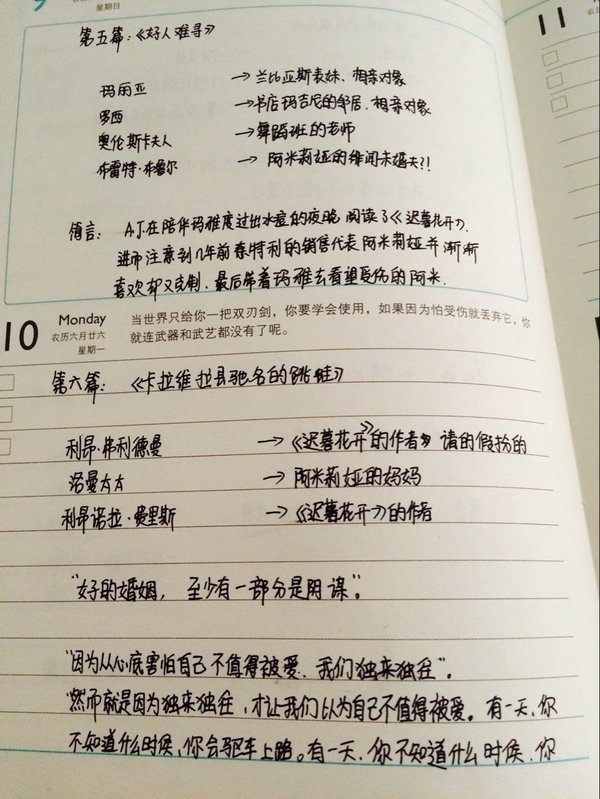 星期日
11
农历
第五篇：《好人难寻》
玛丽亚 → 兰比亚斯表妹、相亲对象
罗西 → 书店玛吉尼的邻居、相亲对象
奥伦斯卡夫人 → 舞蹈班的老师
布雷特·布鲁尔 → 阿米莉娅的绯闻未婚夫?!
传言： A.J在陪伴玛雅度过出水痘的夜晚阅读了《迟暮花开》.
进而注意到几年前奈特利的销售代表阿米莉娅并渐渐
喜欢却又克制、最后带着玛雅去看望受伤的阿米.
10 Monday 当世界只给你一把双刃剑，你要学会使用，如果因为怕受伤就丢弃它，你
农历六月廿六
星期一 就连武器和武艺都没有了呢。
第六篇：《卡拉维拉县驰名的跳蛙》
利昂·弗利德曼 → 《迟暮花开》的作者》请的假扮的
洛曼太太 → 阿米莉娅的妈妈
利昂诺拉·费里斯 → 《迟暮花开》的作者
"好的婚姻，至少有一部分是阴谋"。
"因为从心底害怕自己不值得被爱、我们独来独往"。
"然而就是因为独来独往，才让我们以为自己不值得被爱。有一天、你
不知道什么时候、你会驱车上路。有一天、你不知道什么时候、你